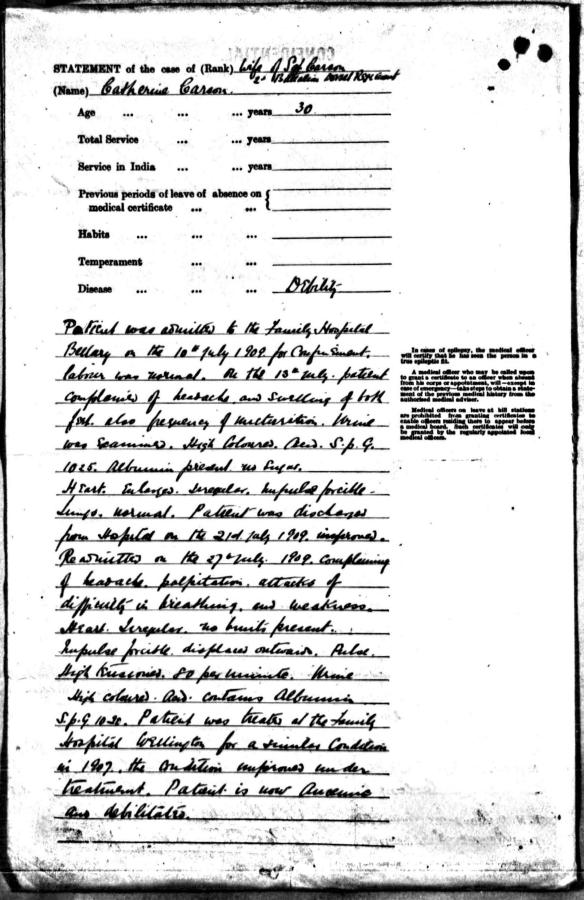 CONFIDENTIAL
STATEMENT of the case of (Rank) Wife of Sgt Carson
2nd Battalion Dorset Regiment
(Name) Catherine Carson.
Age ... ... ... years 30
Total Service ... ... years
Service in India ... ... years
Previous periods of leave of absence on
medical certificate ... ...
Habits ... ... ...
Temperament ... ...
Disease ... ... ... Debility
Patient was admitted to the Family Hospital
Bellary on the 10th July 1909 for Confinement.
labour was normal. On the 13th July. patient
complained of headache and swelling of both
feet. also frequency of micturition. Urine
was examined. High Coloured. Acid. S.p.G.
1025. Albumin present no Sugar.
Heart. Enlarged. Irregular. Impulse forcible.
Lungs. normal. Patient was discharged
from Hospital on the 21st July 1909. improved.
Readmitted on the 27th July. 1909. Complaining
of headache. palpitation. attacks of
difficulty in breathing. and weakness.
Heart. Irregular. no bruits present.
Impulse forcible. displaced outwards. Pulse.
High tensioned. 80 per minute. Urine
High coloured. Acid. contains Albumin
S.p.G. Patient was treated at the Family
Hospital Wellington for a similar Condition
in 1907. the condition improved under
treatment. Patient is now Anaemic
and debilitated.
In cases of epilepsy, the medical officer
will certify that he has seen the person in a
true epileptic fit.
A medical officer who may be called upon
to grant a certificate to an officer when absent
from his corps or appointment, will—except in
case of emergency—take steps to obtain a state-
ment of the previous medical history from the
authorised medical adviser.
Medical officers on leave at hill stations
are prohibited from granting certificates to
enable officers residing there to appear before
a medical board. Such certificates will only
be granted by the regularly appointed local
medical officers.